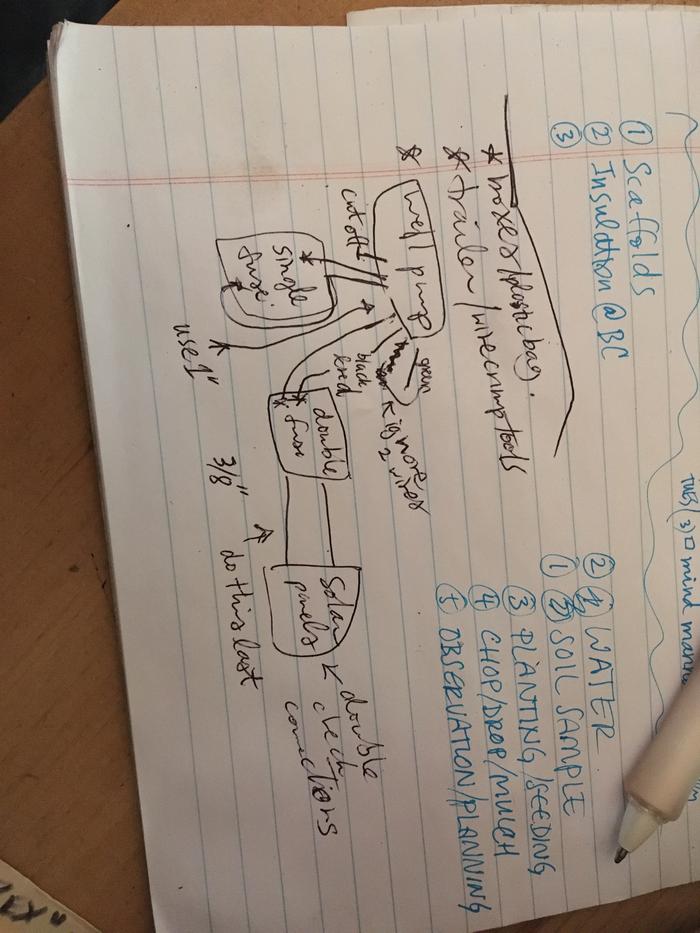 TUES (3) □ mind
① Scaffolds
② Insulation @ BC
③
② 1 WATER
① ② SOIL SAMPLE
③ PLANTING/SEEDING
④ CHOP/DROP/MULCH
⑤ OBSERVATION/PLANNING
* boxes/plastic bag.
* trailer/wirecrimp tools
*
well pump
green
ignore
2 wires
cutoff
black
&red
single
fuse
use 1"
double
fuse
3/8"
Solar
panels
double
check
conections
do this last